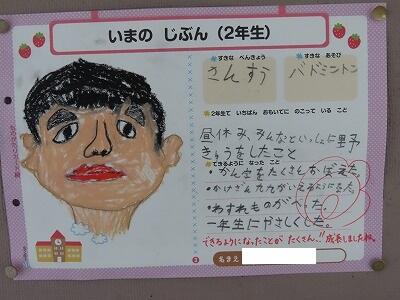 いまの じぶん(2年生)
すきな べんきょう
さんすう
すきな あそび
バドミントン
2年生で いちばん おもいでに のこって いる こと
昼休み、みんなといっしょに野
きゅうをしたこと
できるように なった こと
・かん字をたくさんおぼえた。
・かけざん九九がいえるようになった
・わすれものがへった。
一年生にやさしくした。
できるようになったことが たくさん!! 成長しましたね。
なまえ